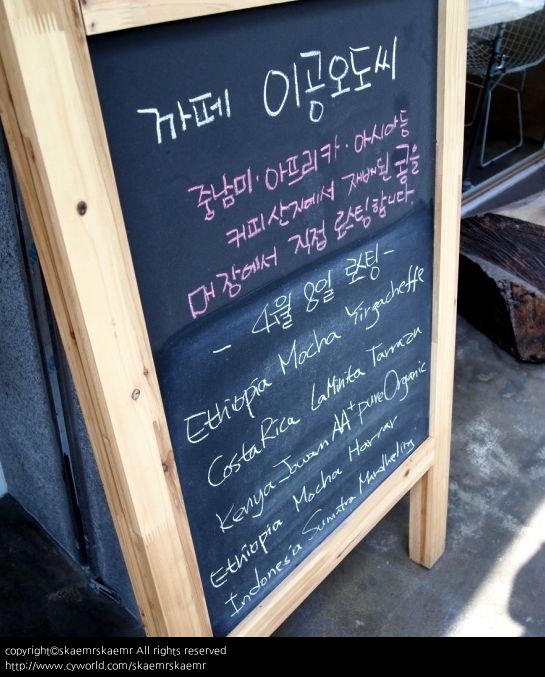 까페 이공오도씨
중남미·아프리카·아시아등
커피산지에서 재배된 콩을
매장에서 직접 로스팅합니다.
- 4월 8일 로스팅 -
Ethiopia Mocha Yirgacheffe
Costa Rica LaMinita Tarrazu
Kenya Jowam AA+ pure Organic
Ethiopia Mocha Harrar
Indonesia Sumatra Mandheling
copyright©skaemrskaemr All rights reserved
http://www.cyworld.com/skaemrskaemr